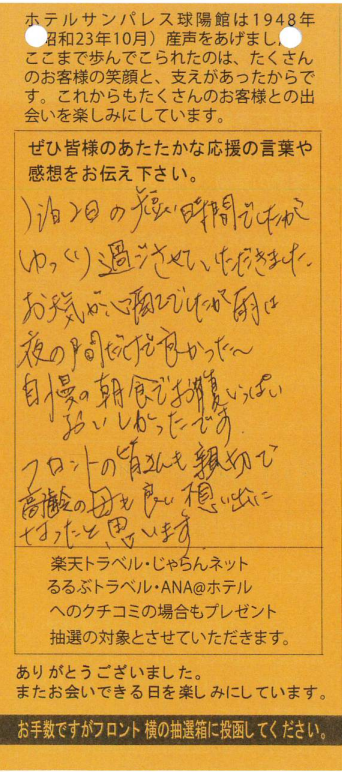 ホテルサンパレス球陽館は1948年
昭和23年10月）産声をあげまし
ここまで歩んでこられたのは、たくさん
のお客様の笑顔と、支えがあったからで
す。これからもたくさんのお客様との出
会いを楽しみにしています。
ぜひ皆様のあたたかな応援の言葉や
感想をお伝え下さい。
1泊2日の短い時間でしたが
ゆっくり過ごさせていただきました
お天気が心配でしたが雨は
夜の間だけで良かった〜
自慢の朝食でお腹いっぱい
おいしかったです
フロントの皆さんも親切で
高齢の母も良い想い出に
なったと思います
楽天トラベル・じゃらんネット
るるぶトラベル・ANA@ホテル
へのクチコミの場合もプレゼント
抽選の対象とさせていただきます。
ありがとうございました。
またお会いできる日を楽しみにしています。
お手数ですがフロント横の抽選箱に投函してください。